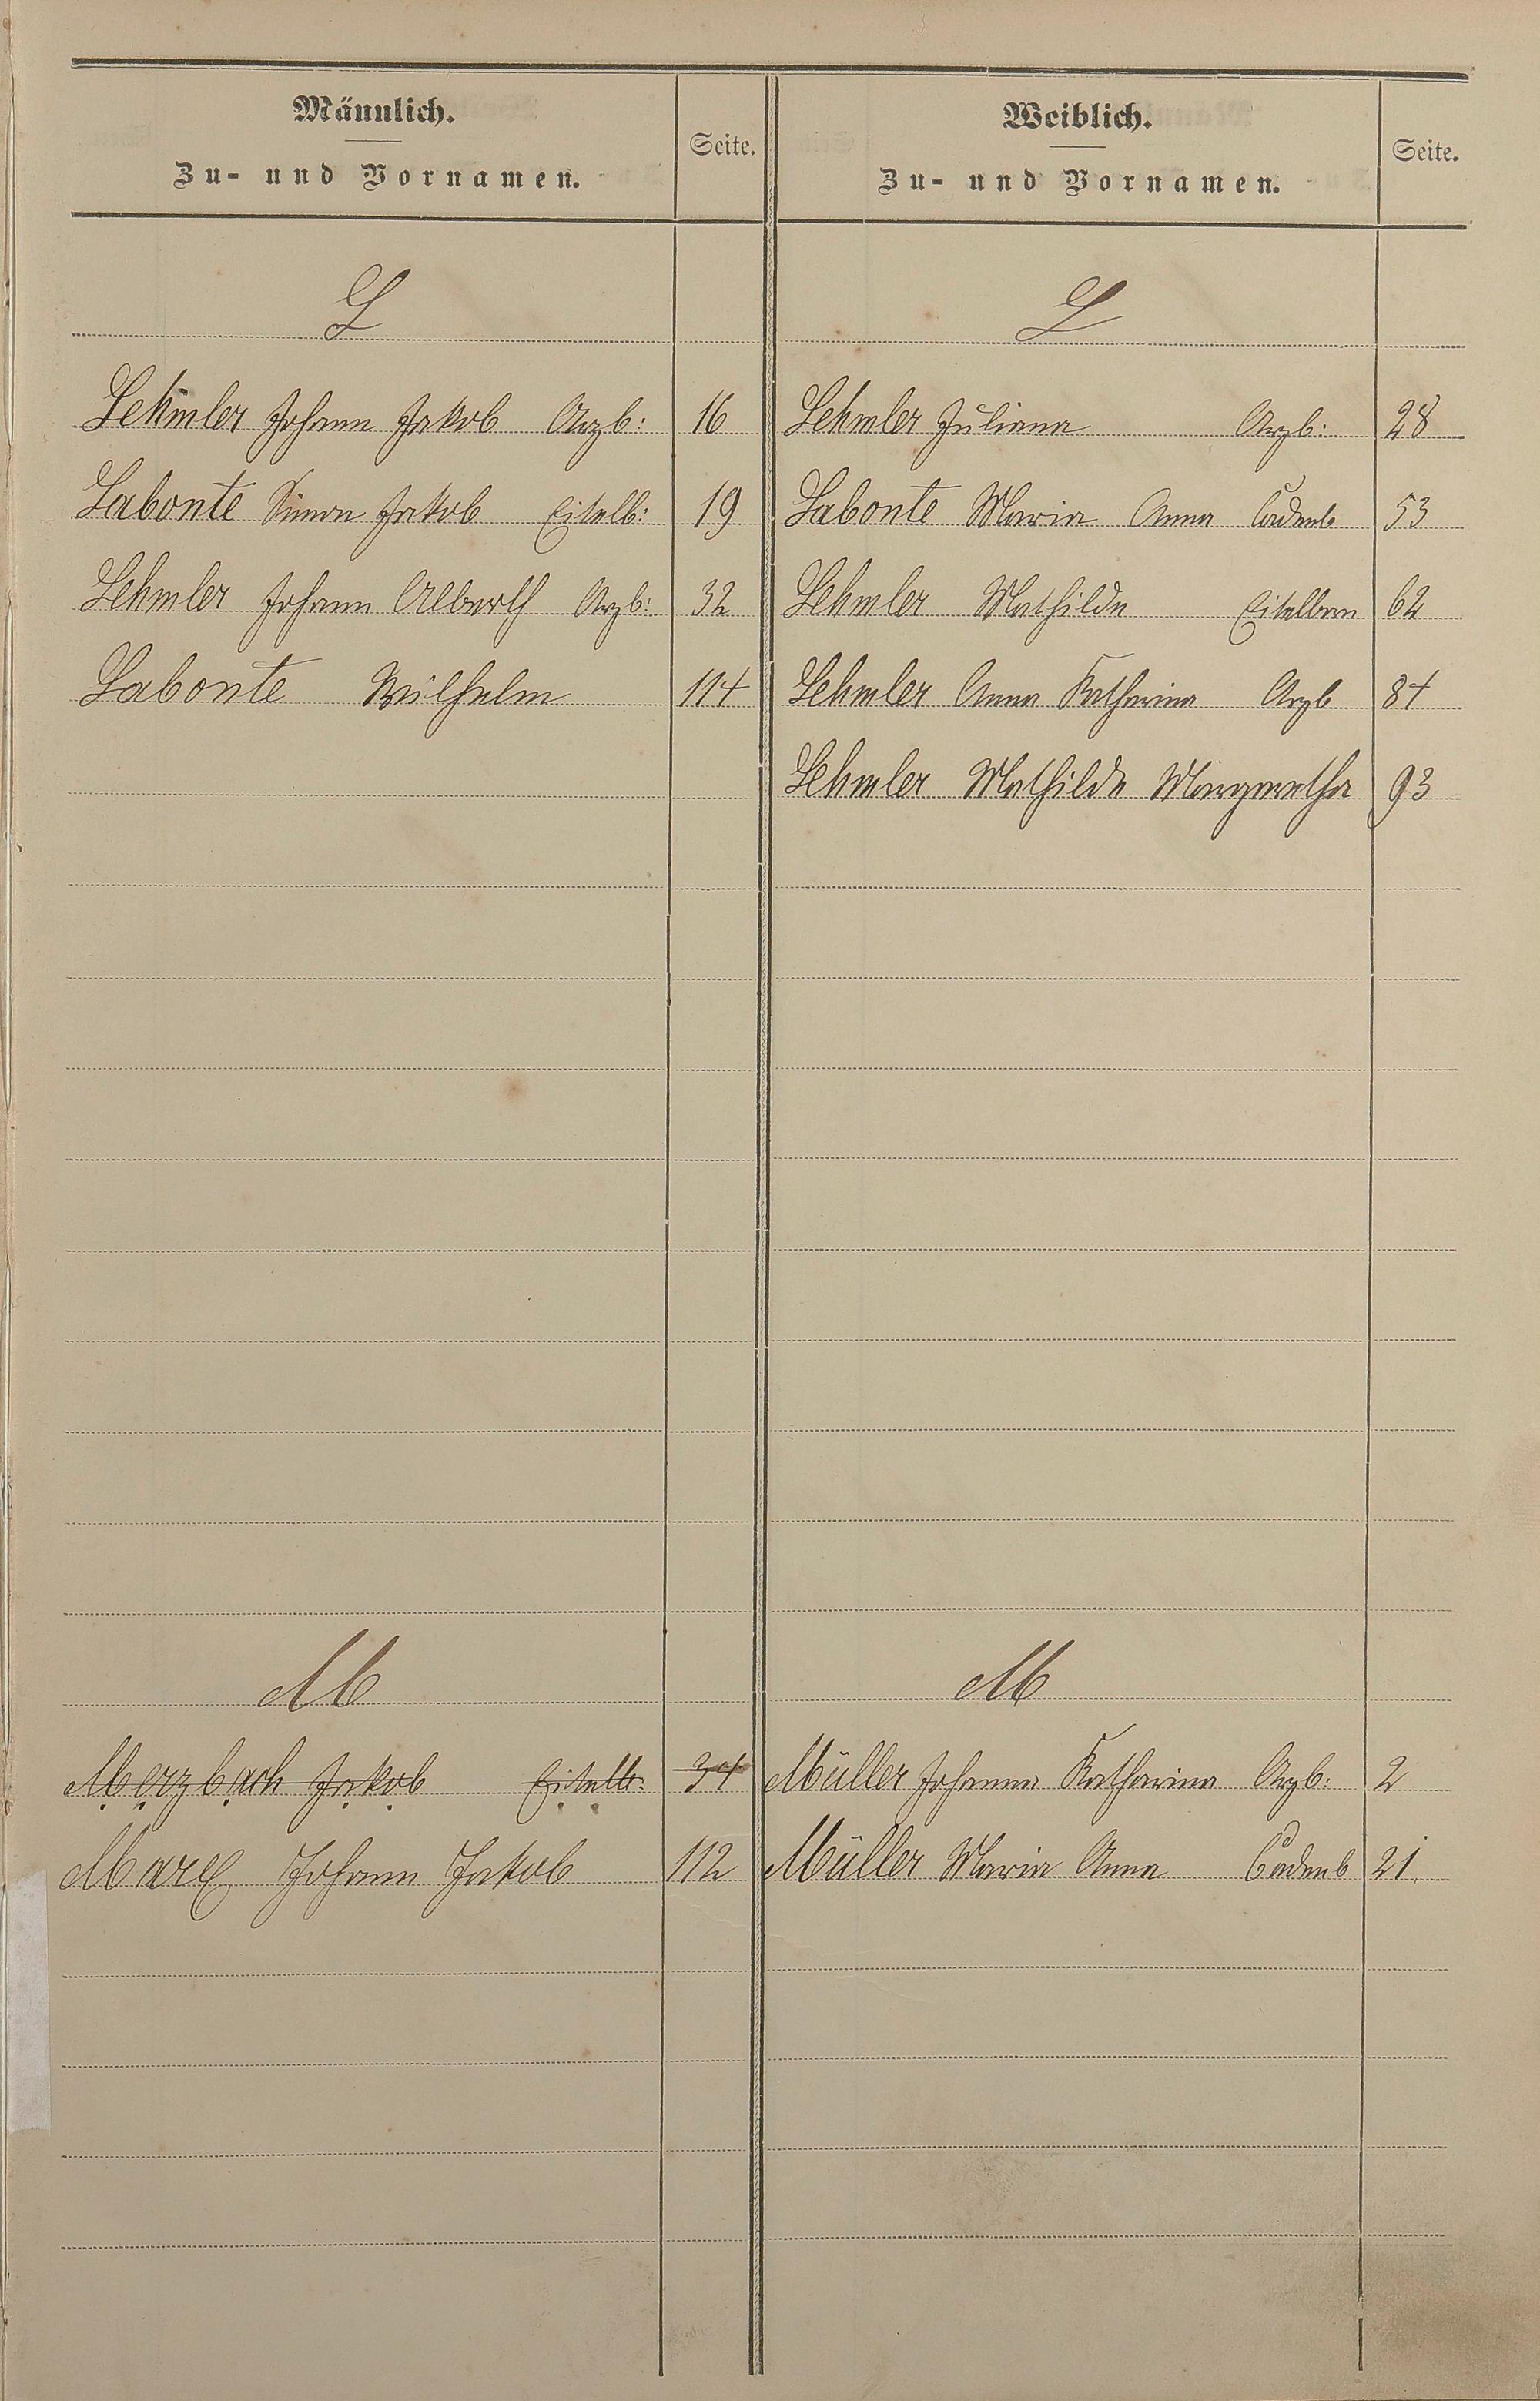 Männlich.
Zu- und Vornamen.
Seite.
Weiblich.
Zu- und Vornamen.
Seite.
L
L
Lehmler Johann Jakob Arzb: 16
Lehmler Juliana Arzb: 28
Labonte Simon Jakob Eitelb: 19
Labonte Maria Anna Cadenb 53
Lehmler Johann Alberth Arzb: 32
Lehmler Mathilde Eitelborn 62
Labonte Wilhelm 114
Lehmler Anna Katharina Arzb 84
Lehmler Mathilde Margaretha 93
M
M
Merzbach Jakob Eitelb: 34
Müller Johanna Katharina Arzb: 2
Marx Johann Jakob 112
Müller Maria Anna Cadenb 21